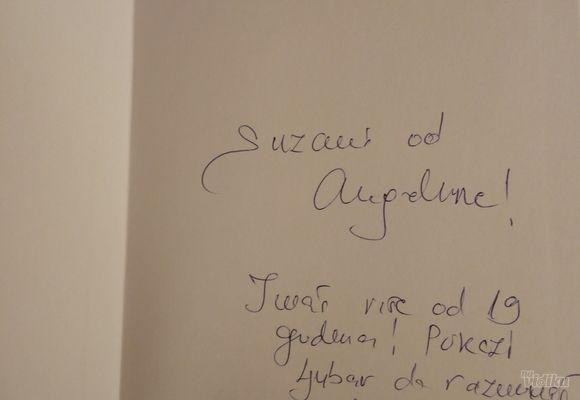 Suzani od
Angeline!
Imaš više od 19
godina! Pokaži
ljubav da razumeš